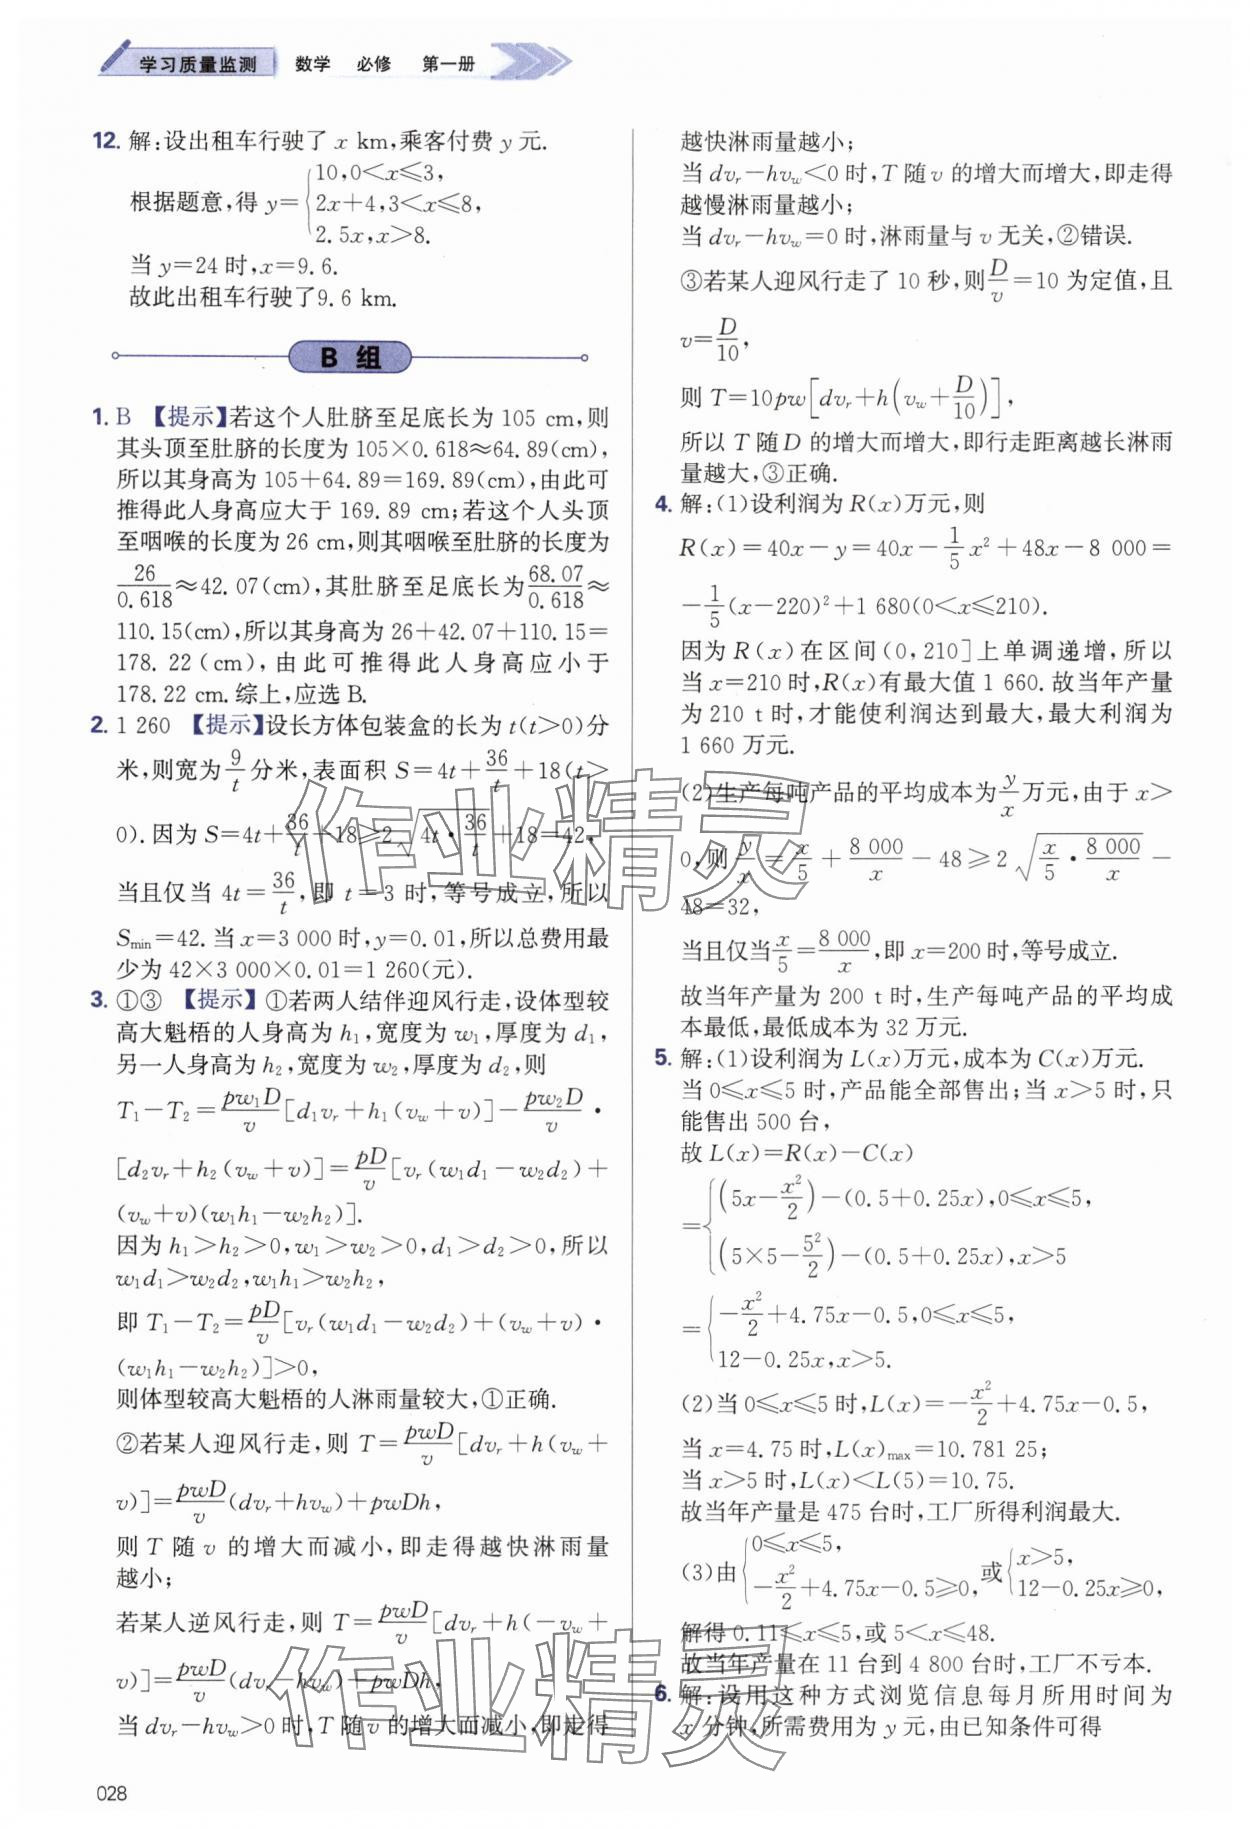 学习质量监测 数学 必修 第一册
12. 解:设出租车行驶了 x km,乘客付费 y 元.
根据题意,得 y={10,0<x≤3,
2x+4,3<x≤8,
2.5x,x>8.
当 y=24 时,x=9.6.
故此出租车行驶了9.6 km.
B 组
1. B 【提示】若这个人肚脐至足底长为 105 cm,则
其头顶至肚脐的长度为 105×0.618≈64.89(cm),
所以其身高为 105+64.89=169.89(cm),由此可
推得此人身高应大于 169.89 cm;若这个人头顶
至咽喉的长度为 26 cm,则其咽喉至肚脐的长度为
26/0.618≈42.07(cm),其肚脐至足底长为68.07/0.618≈
110.15(cm),所以其身高为 26+42.07+110.15=
178.22(cm),由此可推得此人身高应小于
178.22 cm.综上,应选 B.
2. 1 260 【提示】设长方体包装盒的长为 t(t>0)分
米,则宽为9/t分米,表面积 S=4t+36/t+18(t>
0).因为 S=4t+36/t+18≥2√(4t·36/t)+18=42,
当且仅当 4t=36/t,即 t=3 时,等号成立,所以
Smin=42.当 x=3 000 时,y=0.01,所以总费用最
少为 42×3 000×0.01=1 260(元).
3. ①③ 【提示】①若两人结伴迎风行走,设体型较
高大魁梧的人身高为 h₁,宽度为 w₁,厚度为 d₁,
另一人身高为 h₂,宽度为 w₂,厚度为 d₂,则
T₁-T₂=pw₁D/v[d₁vᵣ+h₁(v_w+v)]-pw₂D/v·
[d₂vᵣ+h₂(v_w+v)]=pD/v[vᵣ(w₁d₁-w₂d₂)+
(v_w+v)(w₁h₁-w₂h₂)].
因为 h₁>h₂>0,w₁>w₂>0,d₁>d₂>0,所以
w₁d₁>w₂d₂,w₁h₁>w₂h₂,
即 T₁-T₂=pD/v[vᵣ(w₁d₁-w₂d₂)+(v_w+v)·
(w₁h₁-w₂h₂)]>0,
则体型较高大魁梧的人淋雨量较大,①正确.
②若某人迎风行走,则 T=pwD/v[dvᵣ+h(v_w+
v)]=pwD/v(dvᵣ+hv_w)+pwDh,
则 T 随 v 的增大而减小,即走得越快淋雨量
越小;
若某人逆风行走,则 T=pwD/v[dvᵣ+h(-v_w+
v)]=pwD/v(dvᵣ-hv_w)+pwDh,
当 dvᵣ-hv_w>0 时,T 随 v 的增大而减小,即走得
028
越快淋雨量越小;
当 dvᵣ-hv_w<0 时,T 随 v 的增大而增大,即走得
越慢淋雨量越小;
当 dvᵣ-hv_w=0 时,淋雨量与 v 无关,②错误.
③若某人迎风行走了 10 秒,则D/v=10 为定值,且
v=D/10,
则 T=10pw[dvᵣ+h(v_w+D/10)],
所以 T 随 D 的增大而增大,即行走距离越长淋雨
量越大,③正确.
4. 解:(1)设利润为 R(x)万元,则
R(x)=40x-y=40x-1/5x²+48x-8 000=
-1/5(x-220)²+1 680(0<x≤210).
因为 R(x)在区间(0,210]上单调递增,所以
当 x=210 时,R(x)有最大值 1 660.故当年产量
为 210 t 时,才能使利润达到最大,最大利润为
1 660 万元.
(2)生产每吨产品的平均成本为y/x万元,由于 x>
0,则y/x=x/5+8 000/x-48≥2√(x/5·8 000/x)-
48=32,
当且仅当x/5=8 000/x,即 x=200 时,等号成立.
故当年产量为 200 t 时,生产每吨产品的平均成
本最低,最低成本为 32 万元.
5. 解:(1)设利润为 L(x)万元,成本为 C(x)万元.
当 0≤x≤5 时,产品能全部售出;当 x>5 时,只
能售出 500 台,
故 L(x)=R(x)-C(x)
={(5x-x²/2)-(0.5+0.25x),0≤x≤5,
(5×5-5²/2)-(0.5+0.25x),x>5
={-x²/2+4.75x-0.5,0≤x≤5,
12-0.25x,x>5.
(2)当 0≤x≤5 时,L(x)=-x²/2+4.75x-0.5,
当 x=4.75 时,L(x)max=10.781 25;
当 x>5 时,L(x)<L(5)=10.75.
故当年产量是 475 台时,工厂所得利润最大.
(3)由{0≤x≤5, -x²/2+4.75x-0.5≥0,或{x>5, 12-0.25x≥0,
解得 0.11≤x≤5,或 5<x≤48.
故当年产量在 11 台到 4 800 台时,工厂不亏本.
6. 解:设用这种方式浏览信息每月所用时间为
x 分钟,所需费用为 y 元,由已知条件可得
作业精灵
作业精灵